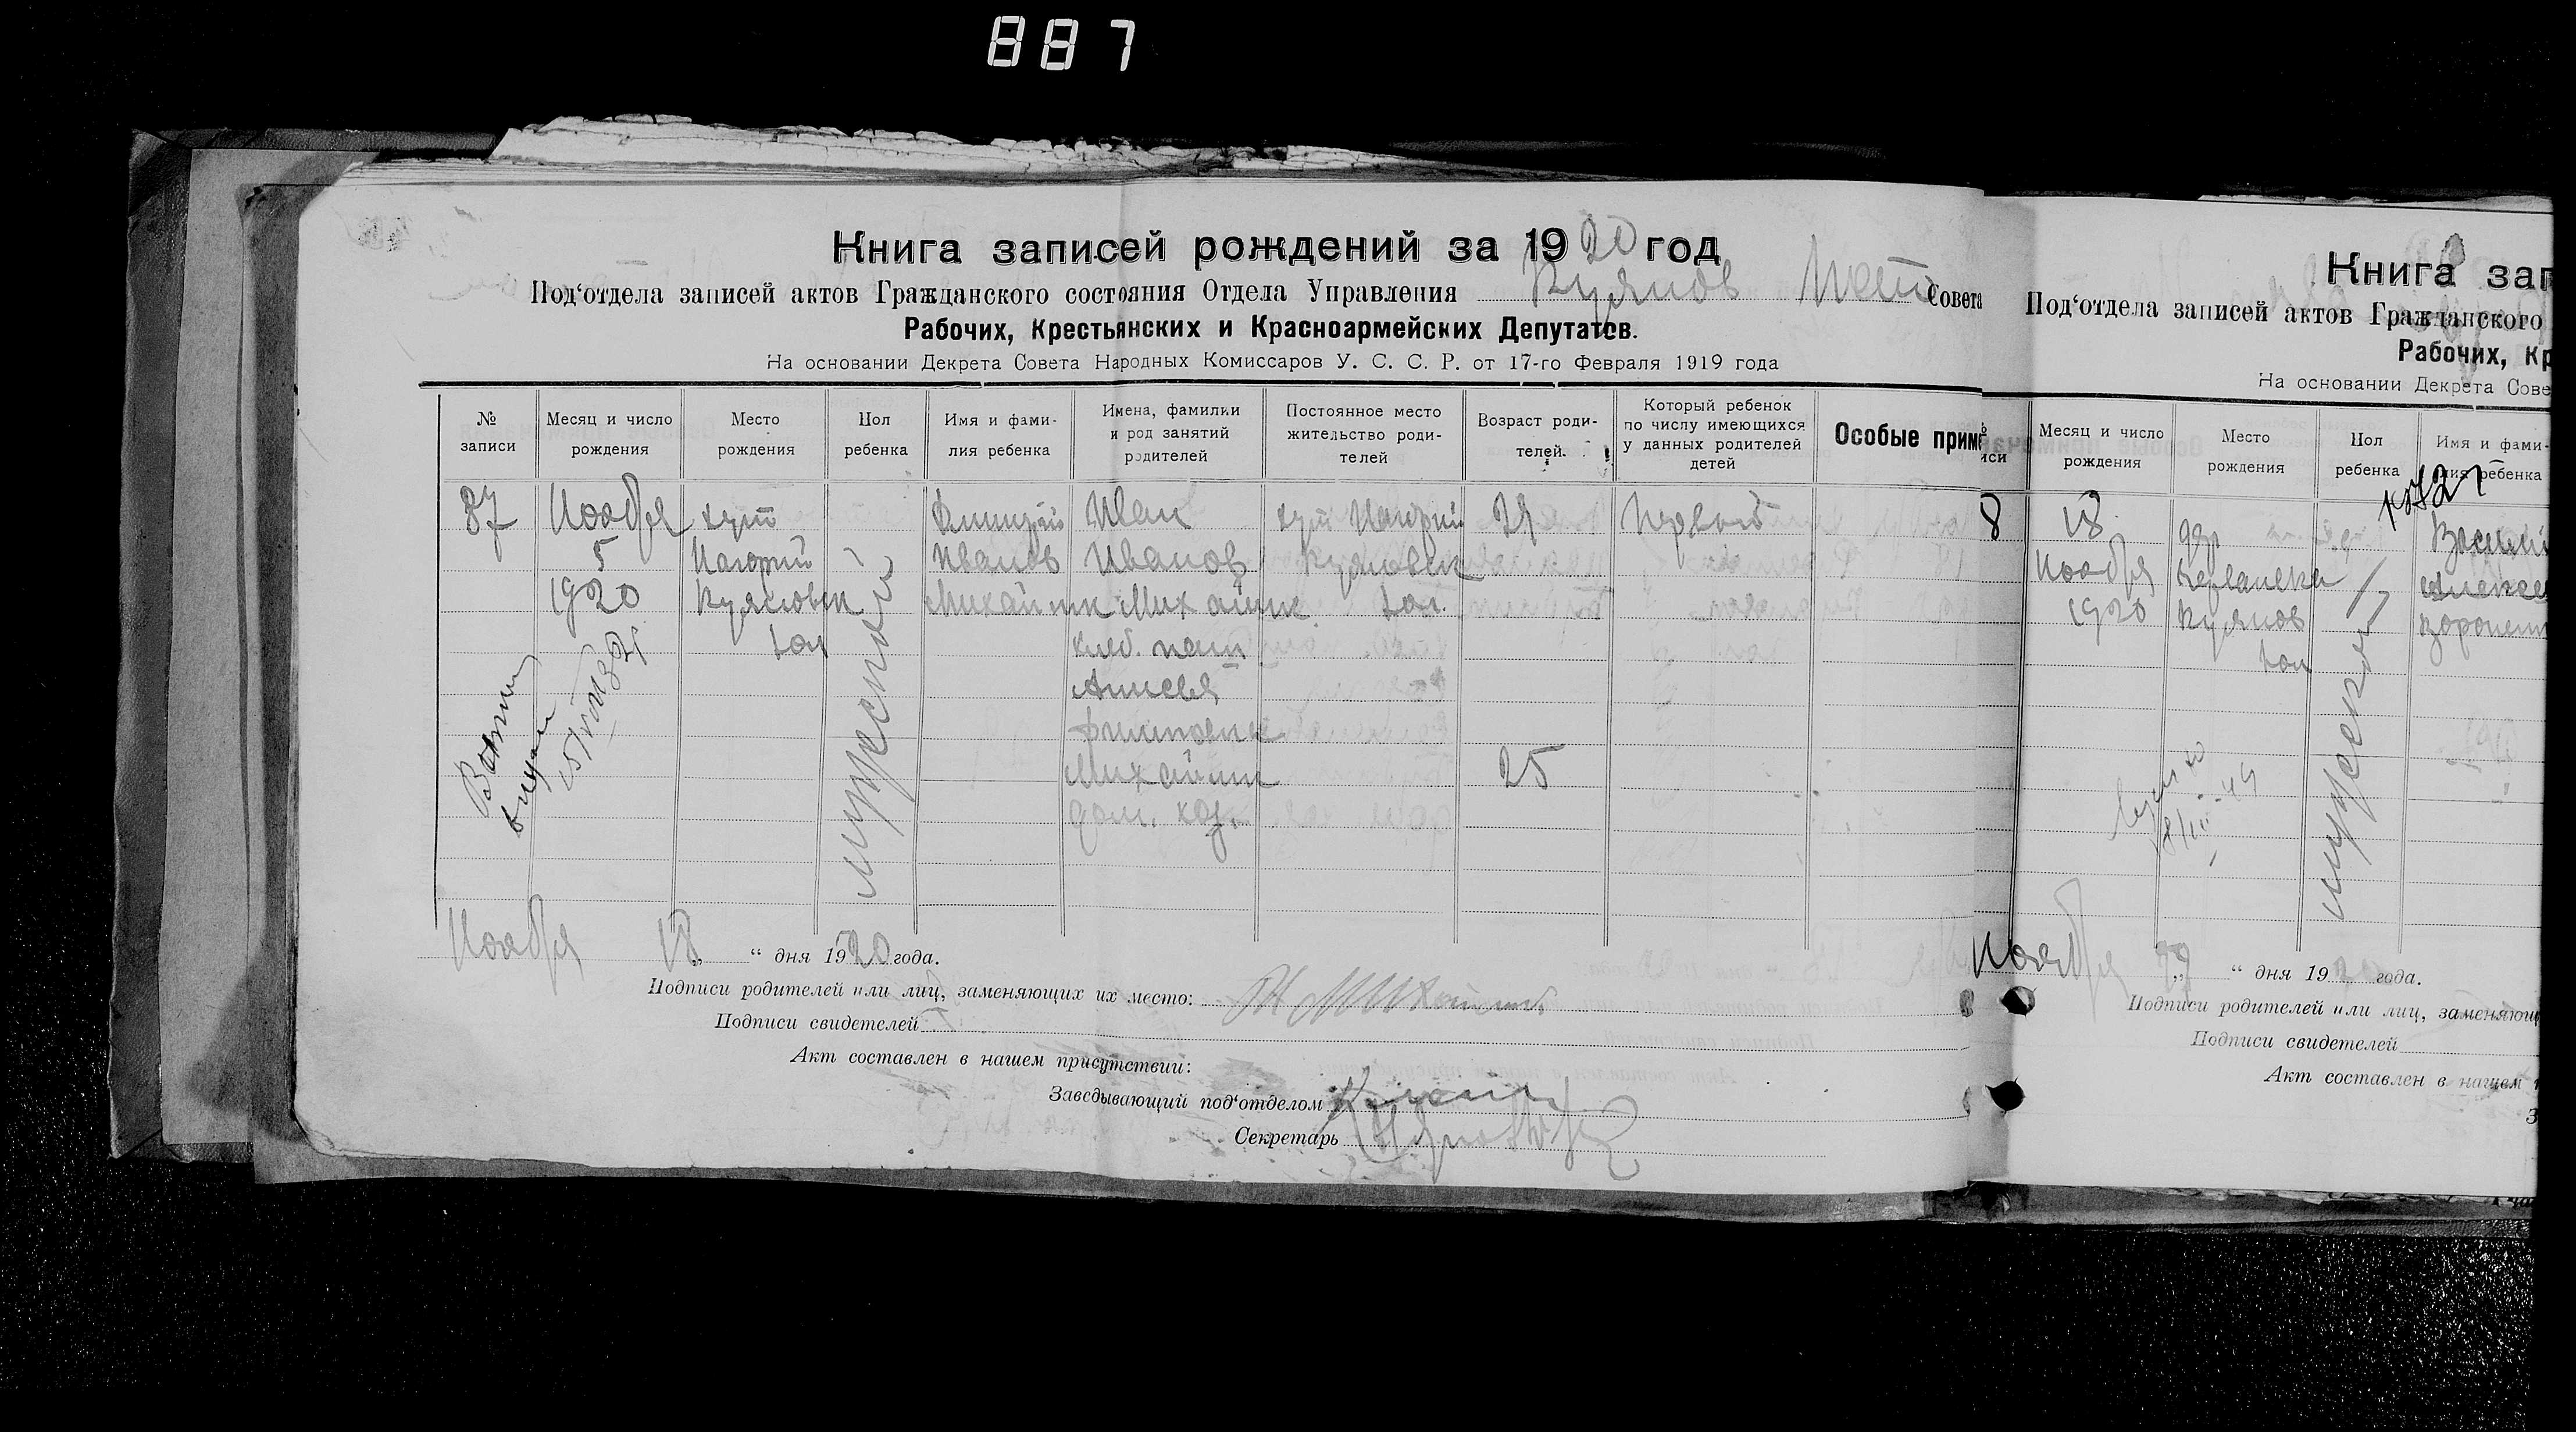 887
Книга записей рождений за 1920 год
Под‘отдела записей актов Гражданского состояния Отдела Управления Куянов Совета
Рабочих, Крестьянских и Красноармейских Депутатов.
На основании Декрета Совета Народных Комиссаров У. С. С. Р. от 17-го Февраля 1919 года
№ записи
Месяц и число рождения
Место рождения
Пол ребенка
Имя и фами-
лия ребенка
Имена, фамилии
и род занятий
родителей
Постоянное место
жительство роди-
телей
Возраст роди-
телей.
Который ребенок
по числу имеющихся
у данных родителей
детей
Особые прим
87
Ноября
5
1920
хут
Нагорний
Куяновск
вол
мужеский
Димитрий
Иванов
Михайлик
Иван
Иванов
Михайлик
хлеб. паш
Михайлик
дом. хоз.
хут Нагорний
Куяновск
вол.
25
Первый
Ноября 18 “ дня 1920 года.
Подписи родителей или лиц, заменяющих их место:
Подписи свидетелей
Акт составлен в нашем присутствии:
Заведывающий под‘отделом
Секретарь
Книга зап
Под‘отдела записей актов Гражданского
Рабочих, Кр
На основании Декрета Сове
иси
Месяц и число
рождения
Место
рождения
Пол
ребенка
Имя и фами-
лия ребенка
8
18
Ноября
1920
дер
Куянов
вол
мужеский
Василий
Алексее
Ноября “ дня 192 года.
Подписи родителей или лиц, заменяющ
Подписи свидетелей
Акт составлен в нашем п
З